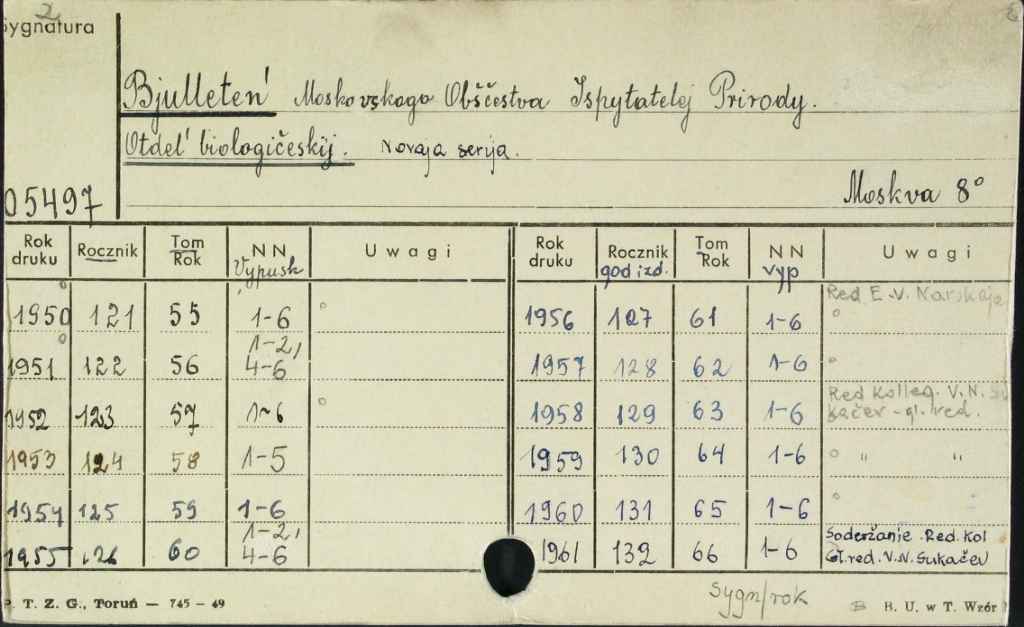 2
Sygnatura
Bjulleten' Moskovskago Obščestva Ispytatelej Prirody.
Otdel' biologičeskij. Novaja serija.
05497
Moskva 8°
Rok druku Rocznik Tom Rok NN Vypusk Uwagi Rok druku Rocznik god izd. Tom Rok NN vyp Uwagi
1950 121 55 1-6 ° 1956 127 61 1-6 Red E.V. Narskaja °
1951 122 56 1-2, 4-6 1957 128 62 1-6 °
1952 123 57 1-6 ° 1958 129 63 1-6 Red Kolleg. V.N. Su
kačev - gl. red.
1953 124 58 1-5 1959 130 64 1-6 ° " "
1954 125 59 1-6 1960 131 65 1-6 °
1955 126 60 1-2, 4-6 1961 132 66 1-6 Soderžanie Red. Kol
Gl. red. V.N. Sukačev
P. T. Z. G., Toruń — 745 – 49
Sygn/rok
B. U. w T. Wzór